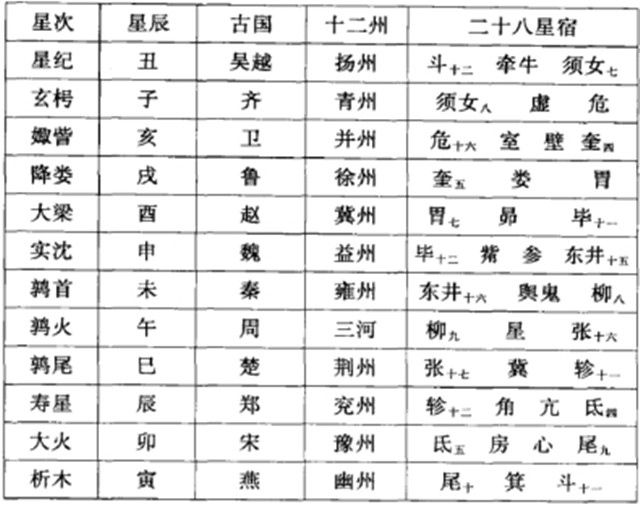 星次 星辰 古国 十二州 二十八星宿
星纪 丑 吴越 扬州 斗十二 牵牛 须女七
玄枵 子 齐 青州 须女八 虚 危
娵訾 亥 卫 并州 危十六 室 壁 奎四
降娄 戌 鲁 徐州 奎五 娄 胃
大梁 酉 赵 冀州 胃七 昴 毕十一
实沈 申 魏 益州 毕十二 觜 参 东井十五
鹑首 未 秦 雍州 东井十六 舆鬼 柳八
鹑火 午 周 三河 柳九 星 张十六
鹑尾 巳 楚 荆州 张十七 冀 轸十一
寿星 辰 郑 兖州 轸十二 角 亢 氐四
大火 卯 宋 豫州 氐五 房 心 尾九
析木 寅 燕 幽州 尾十 箕 斗十一